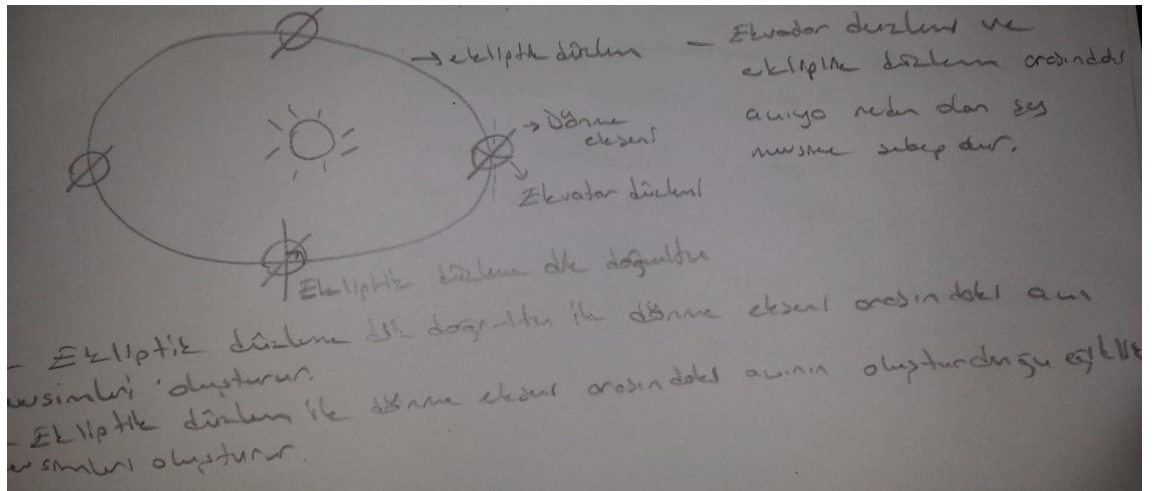 → ekliptik düzlem
→ Dönme ekseni
Ekvator düzlemi
Ekliptik düzleme dik doğrultu
- Ekvator düzlemi ve
ekliptik düzlem arasındaki
açıya neden olan şey
mevsime sebep dur.
- Ekliptik düzleme dik doğrultu ile dönme ekseni arasındaki açı
evsimleri oluşturur.
- Ekliptik düzlem ile dönme ekseni arasındaki açının oluşturduğu eğiklik
evsimleri oluşturur.